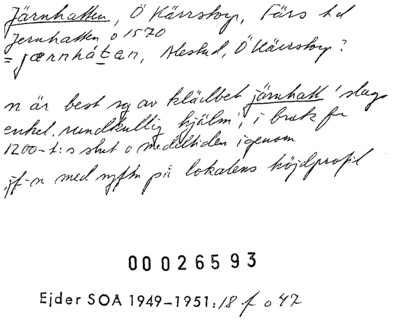 Järnhatten, Ö Kärrstorp, Färs hd
Jernhatten o 1570
= jærnhátan, Alestad, Ö Kärrstorp?
n är best sg av klädbet järnhatt 'slags
enkel, rundkullig hjälm', i bruk fr
1200-t:s slut o medeltiden igenom
jf-n med syftn på lokalens höjdprofil
00026593
Ejder SOA 1949-1951:18 f o 47